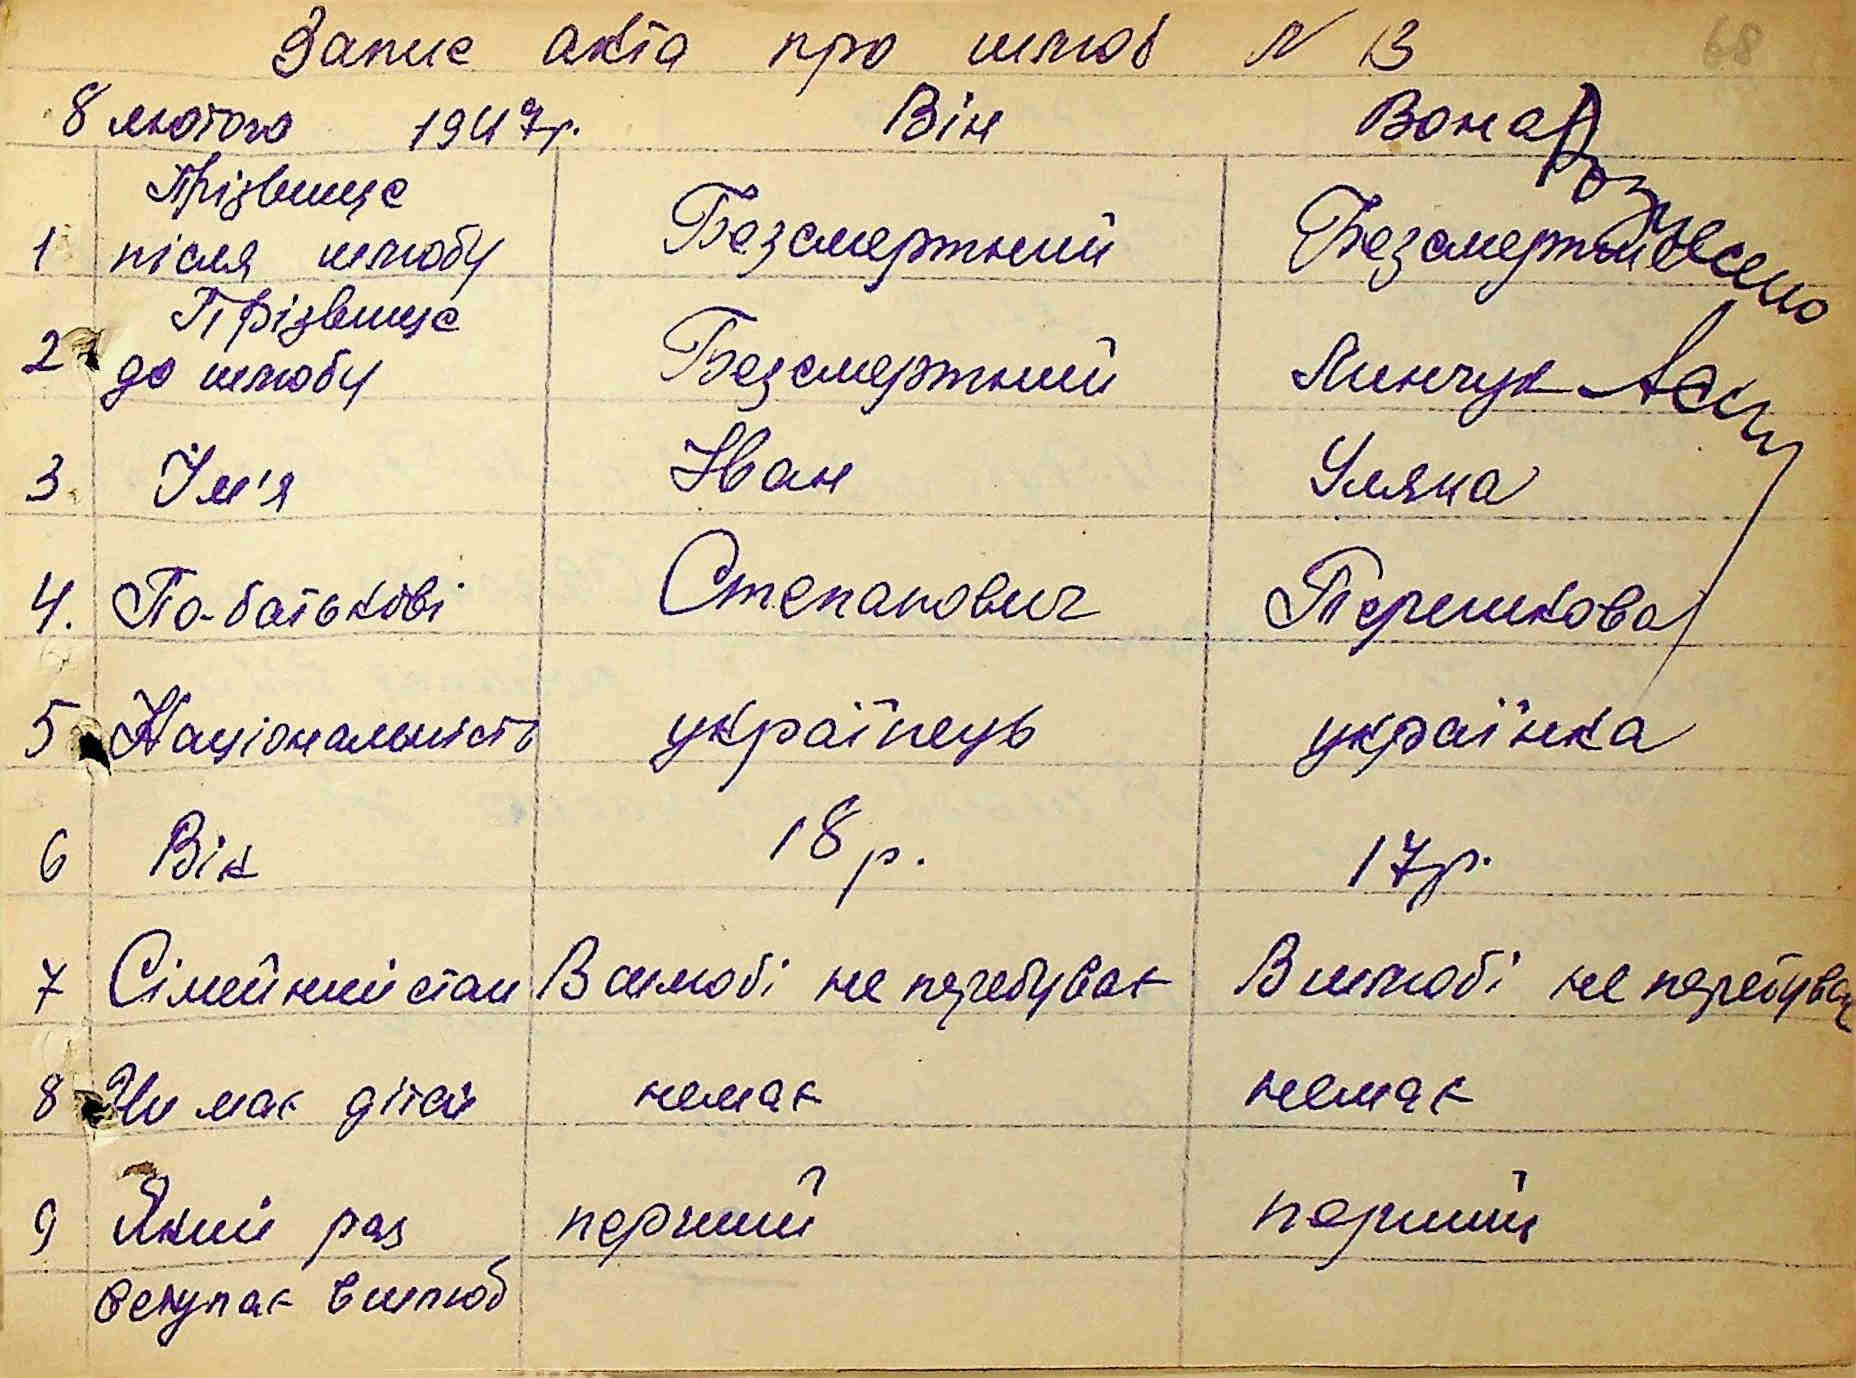 Запис акта про шлюб N 13
68
8 лютого 1947р. Він Вона
Прізвище
1 після шлюбу Безсмертний Безсмертна
Прізвище
2 до шлюбу Безсмертний Линчук
3. Ім'я Іван Уляна
4. По-батькові Степанович
5 Національність українець українка
6 Вік 18 р. 17р.
7 Сімейний стан В шлюбі не перебував В шлюбі не перебува
8 Чи має дітей немає немає
9 Який раз перший перший
вступає в шлюб